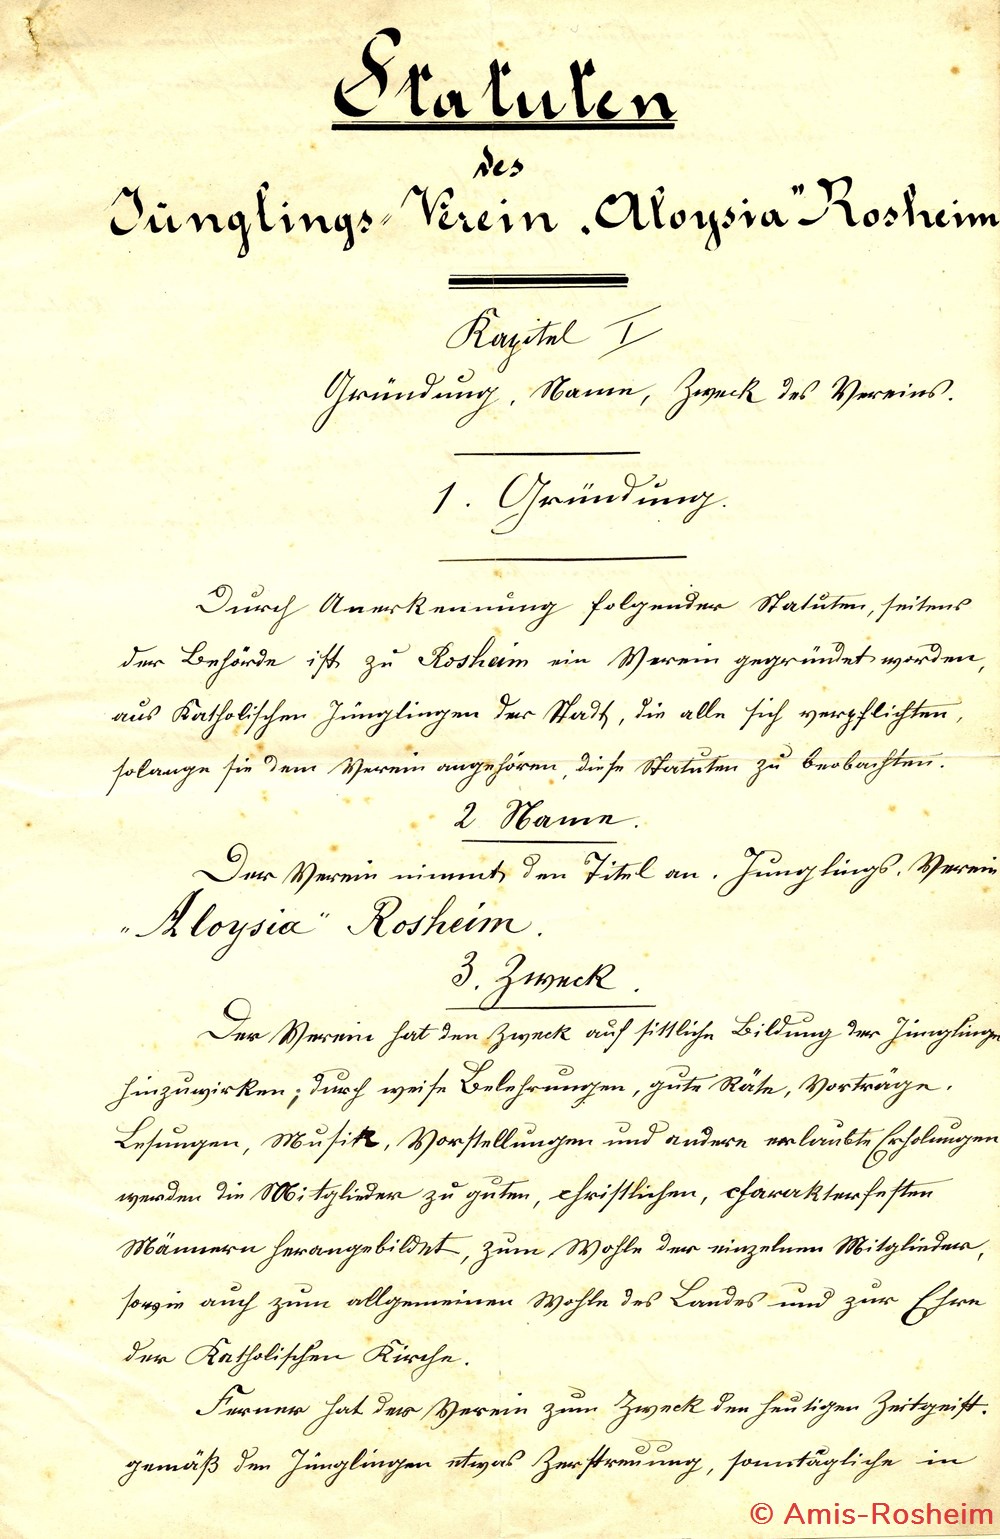 Statuten
des
Jünglings-Verein „Aloysia" Rosheim
Kapitel I
Gründung, Name, Zweck des Vereins.
1. Gründung.
Durch Anerkennung folgender Statuten, seitens
der Behörde ist zu Rosheim ein Verein gegründet worden,
aus Katholischen Jünglingen der Stadt, die alle sich verpflichten,
solange sie dem Verein angehören, diese Statuten zu beobachten.
2 Name.
Der Verein nimmt den Titel an. Junglings. Verein
„Aloysia" Rosheim.
3. Zweck.
Der Verein hat den Zweck auf sittliche Bildung der Jünglinge
hinzuwirken; durch weise Belehrungen, gute Räte, Vorträge.
Lesungen, Musik, Vorstellungen und andere erlaubte Erholungen
werden die Mitglieder zu guten, christlichen, charakterfesten
Männern herangebildet, zum Wohle der einzelnen Mitglieder,
sowie auch zum allgemeinen Wohle des Landes und zur Ehre
der Katholischen Kirche.
Ferner hat der Verein zum Zweck den heutigen Zeitgeist.
gemäß den Jünglingen etwas Zerstreuung, sonntägliche in
© Amis-Rosheim